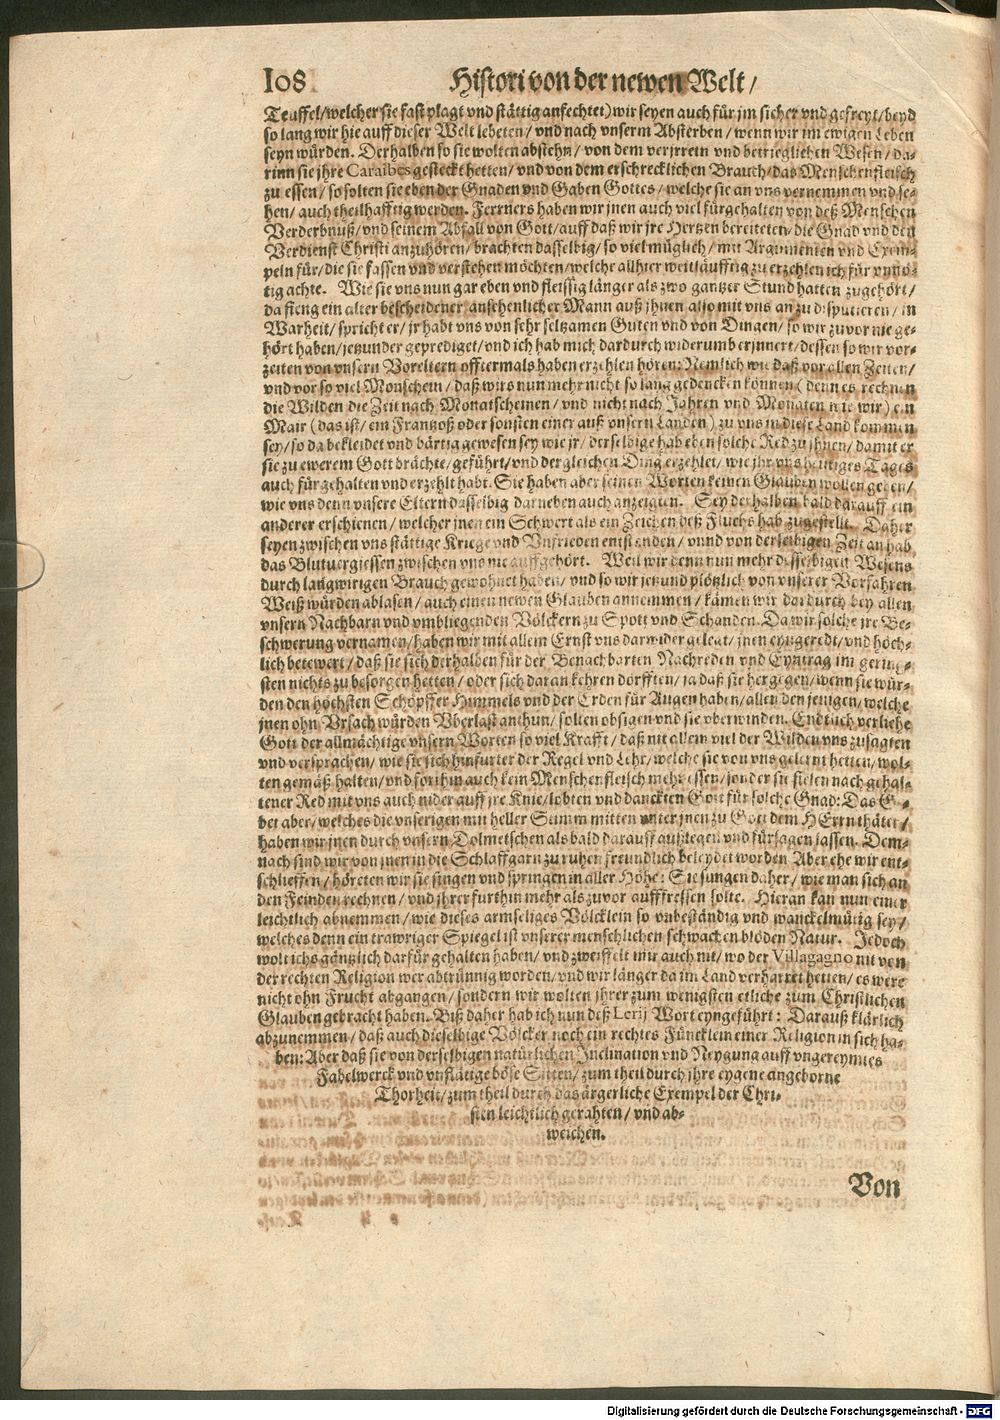 108 Histori von der newen Welt /
Teuffel / welcher sie fast plagt vnd stättig anfechtet) wir seyen auch für jm sicher vnd gefreyt / beyd
so lang wir hie auff dieser Welt lebeten / vnd nach vnserm Absterben / wenn wir im ewigen Leben
seyn würden. Derhalben so sie wolten abstehn / von dem verjrreten vnd betrieglichen Wesen / da-
rinn sie jhre Caraibes gesteckt hetten / vnd von dem erschrecklichen Brauch / das Menschenfleisch
zu essen / so solten sie eben der Gnaden vnd Gaben Gottes / welche sie an vns vernemmen vnd se-
hen / auch theilhafftig werden. Ferrners haben wir jnen auch viel fürgehalten von deß Menschen
Verderbnuß / vnd seinem Abfall von Gott / auff daß wir jre Hertzen bereiteten / die Gnad vnd den
Verdienst Christi anzuhören / brachten dasselbig / so viel müglich / mit Argumenten vnd Exem-
peln für / die sie fassen vnd verstehen möchten / welche allhier weitläufftig zu erzehlen ich für vnnö-
tig achte. Wie sie vns nun gar eben vnd fleissig länger als zwo gantzer Stund hatten zugehört /
da fieng ein alter bescheidener ansehenlicher Mann auß jhnen also mit vns an zu disputieren / in
Warheit / spricht er / jr habt vns von sehr seltzamen Guten vnd von Dingen / so wir zuvor nie ge-
hört haben / jetzunder geprediget / vnd ich hab mich dardurch widerumb erjnnert / dessen so wir vor-
zeiten von vnsern Voreltern offtermals haben erzehlen hören: Nemlich wie daß vor allen Zeiten /
vnd vor so viel Monschein / daß wirs nun mehr nicht so lang gedencken können (denn es rechnen
die Wilden die Zeit nach Monatscheinen / vnd nicht nach Jahren vnd Monaten wie wir) ein
Mair (das ist / ein Frantzoß oder sonsten einer auß vnsern Landen) zu vns in diese Land kommen
sey / so da bekleidet vnd bärtig gewesen sey wie jr / derselbige hab eben solche Red zu jhnen / damit er
sie zu ewerem Gott brächte / geführt / vnd dergleichen Ding erzehlet / wie jhr vns heutiges Tages
auch fürgehalten vnd erzehlt habt. Sie haben aber seinen Worten keinen Glauben wollen geben /
wie vns denn vnsere Eltern dasselbig darneben auch anzeigten. Sey derhalben bald darauff ein
anderer erschienen / welcher jnen ein Schwert als ein Zeichen deß Fluchs hab zugestellt. Daher
seyen zwischen vns stättige Kriege vnd Vnfrieden entstanden / vnnd von derselbigen Zeit an hab
das Blutvergiessen zwischen vns nie auffgehört. Weil wir denn nun mehr desselbigen Wesens
durch langwirigen Brauch gewohnet haben / vnd so wir jetzund plötzlich von vnserer Vorfahren
Weiß würden ablasen / auch einen newen Glauben annemmen / kämen wir dardurch bey allen
vnsern Nachbarn vnd vmbliegenden Völckern zu Spott vnd Schanden. Da wir solche jre Be-
schwerung vernamen / haben wir mit allem Ernst vns darwider gelegt / jnen eyngeredt / vnd höch-
lich betewert / daß sie sich derhalben für der Benachbarten Nachreden vnd Eyntrag im gering-
sten nichts zu besorgen hetten / oder sich daran kehren dörfften / ja daß sie hergegen / wenn sie wür-
den den höchsten Schöpffer Himmels vnd der Erden für Augen haben / allen den jenigen / welche
jnen ohn Vrsach würden Vberlast anthun / solten obsigen vnd sie vberwinden. Endtlich verliehe
Gott der allmächtige vnsern Worten so viel Krafft / daß nit allein viel der Wilden vns zusagten
vnd versprachen / wie sie sich hinfurter der Regel vnd Lehr / welche sie von vns gelernt hetten / wol-
ten gemäß halten / vnd forthin auch kein Menschenfleisch mehr essen / sonder sie fielen nach gehal-
tener Red mit vns auch nider auff jre Knie / lobten vnd danckten Gott für solche Gnad: Das Ge-
bet aber / welches die vnserigen mit heller Stimm mitten vnter jnen zu Gott dem HErrn thäten /
haben wir jnen durch vnsern Dolmetschen als bald darauff außlegen vnd fürsagen lassen. Dem-
nach sind wir von jnen in die Schlaffgarn zu ruhen freundlich beleydet worden. Aber ehe wir ent-
schlieffen / höreten wir sie singen vnd springen in aller Höhe: Sie sungen daher / wie man sich an
den Feinden rechnen / vnd jhrer furthin mehr als zuvor aufffressen solte. Hieran kan nun einer
leichtlich abnemmen / wie dieses armseliges Völcklein so vnbeständig vnd wanckelmütig sey /
welches denn ein trawriger Spiegel ist vnserer menschlichen schwachen blöden Natur. Jedoch
wolt ichs gäntzlich darfür gehalten haben / vnd zweiffelt mir auch nit / wo der Villagagno nit von
der rechten Religion wer abtrünnig worden / vnd wir länger da im Land verharret hetten / es were
nicht ohn Frucht abgangen / sondern wir wolten jhrer zum wenigsten etliche zum Christlichen
Glauben gebracht haben. Biß daher hab ich nun deß Lerij Wort eyngeführt: Darauß klärlich
abzunemmen / daß auch dieselbige Völcker noch ein rechtes Füncklein einer Religion in sich ha-
ben: Aber daß sie von derselbigen natürlichen Inclination vnd Neygung auff vngereymtes
Fabelwerck vnd vnflätige böse Sitten / zum theil durch jhre eygene angeborne
Thorheit / zum theil durch das ärgerliche Exempel der Chri-
sten leichtlich gerahten / vnd ab-
weichen.
Von
Digitalisierung gefördert durch die Deutsche Forschungsgemeinschaft - DFG